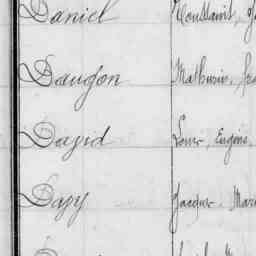 Daniel Toussaint, J
Daugon Mathurin, Fra
David Louis, Eugène,
Davy Jacques Mari